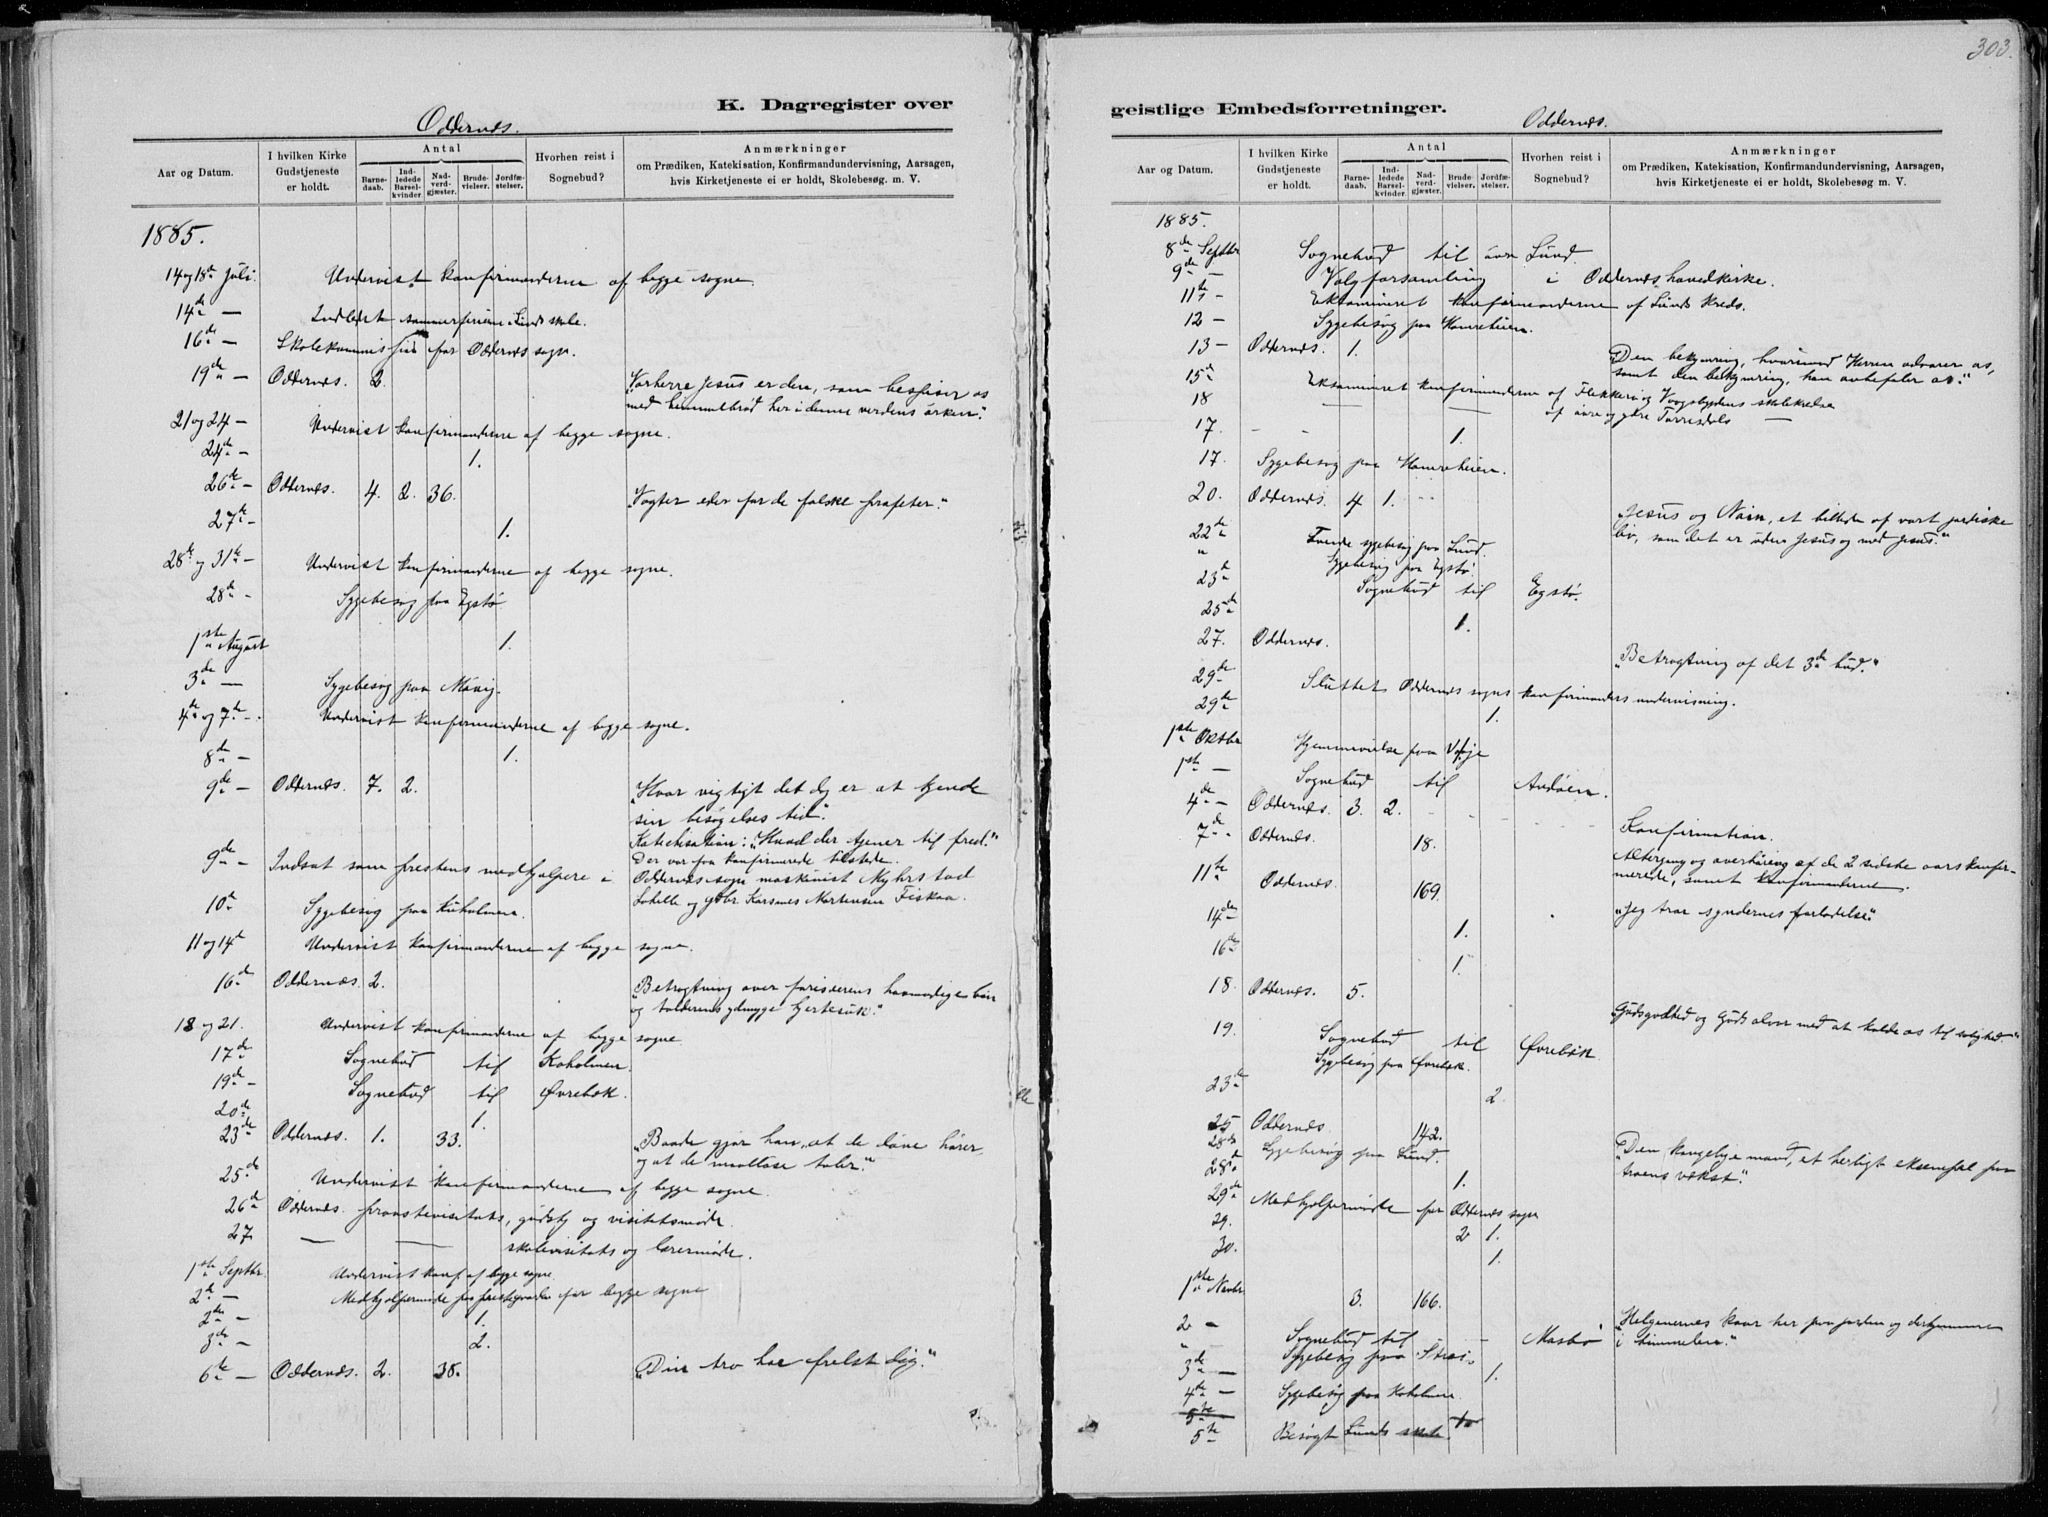 K. Dagregister over
Oddernes.
Aar og Datum.
I hvilken Kirke Gudstjeneste er holdt.
Antal
Barnedaab.
Indledede Barselkvinder.
Nadverdgjæster.
Brudevielser.
Jordfæstelser.
Hvorhen reist i Sognebud?
Anmærkninger
om Prædiken, Katekisation, Konfirmandundervisning, Aarsagen,
hvis Kirketjeneste ei er holdt, Skolebesøg m. V.
1885.
14 og 18de Juli. Undervist konfirmanderne af begge sogne
14de — Indledet sommerferierne i Lunds skole.
16de — Skolekommission for Oddernes sogn.
19de — Oddernes. 2. "Vorherre Jesus er den, som bespiser os
med himmelbrød her i denne verdens ørken".
21 og 24 — Undervist konfirmanderne af begge sogne.
24de — 1.
26de — Oddernes. 4. 2. 36. "Vogter eder for de falske profeter."
27de — 1.
28de og 31te — Undervist konfirmanderne af begge sogne.
28de — Sygebesøg paa Egstø
1ste August 1.
3de — Sygebesøg paa Møvig.
4de og 7de — Undervist konfirmanderne af begge sogne.
8de — 1.
9de — Oddernes. 7. 2. "Hvor vigtigt det dog er at kjende
sin besøgelses tid".
Katekisation: "Hvad der tjener til fred."
Der var paa konfirmerede tilstede.
9de — Indsat som prestens medhjælpere i Oddernes sogn maskinist Myhrstad
Lohelle og gbr. Karsnes Mortensen Fiskaa.
10de Sygebesøg paa Kuholmen.
11 og 14de Undervist konfirmanderne af begge sogne.
16de Oddernes 2. "Betragtning over farisæerens hovmodige bøn
og tolderens ydmyge hjertesuk."
18 og 21. Undervist konfirmanderne af begge sogne
17de Sognebud til Koholmen.
19de — Sognebud til Øvrebøk.
20de 1.
23de Oddernes. 1. 33. "Baade gjør han, at de døve hører
og at de maalløse taler."
25de Undervist konfirmanderne af begge sogne.
26de Oddernes provstevisitats, gudstj og visitatsmøde.
27 — — skolevisitats og lærermøde.
1ste Septbr. Undervist konf. af begge sogne.
2de — Medhjælpermøde paa prestegaarden for begge sogne
2den — 1.
3de — 2.
6te — Oddernes. 2. 38. "Din tro har frelst dig."
303.
geistlige Embedsforretninger.
Oddernes.
Aar og Datum.
I hvilken Kirke Gudstjeneste er holdt.
Antal
Barnedaab.
Indledede Barselkvinder.
Nadverdgjæster.
Brudevielser.
Jordfæstelser.
Hvorhen reist i Sognebud?
Anmærkninger
om Prædiken, Katekisation, Konfirmandundervisning, Aarsagen,
hvis Kirketjeneste ei er holdt, Skolebesøg m. V.
1885.
8de Septbr Sognebud til øvre Lund.
9de — Valgforsamling i Oddernes hovedkirke.
11te — Eksamineret konfirmanderne af Lunds kreds.
12 — Sygebesøg paa Hamreheien.
13 — Oddernes. 1. "Den bekymring, hvorimod Herren advarer os,
samt den bekymring, han anbefaler os."
15de Eksamineret konfirmanderne af Flekkerø og Vaagsbygdens skolekredse
18 — — af øvre og ytre Torresdals —
17. - - 1.
17. Sygebesøg paa Hamreheien.
20. Oddernes. 4 1. "Jesus og Nain, et billede af vort jordiske
liv, som det er uden Jesus og med Jesus."
22de Tvende sygebesøg paa Lund.
" Sygebesøg paa Egstø.
23de Sognebud til Egstø.
25de 1.
27. Oddernes. "Betragtning af det 3de bud."
29de Sluttet Oddernes sogns konfirmanders undervisning.
29de 1.
1ste Oktbr Hjemmevielse paa
1ste — Sognebud til Andøen.
4de — Oddernes. 3. 2. Konfirmation.
7de Oddernes. 18. Altergang og overhøring af de 2 sidste aars konfirmerede, samt konfirmanderne.
11te Oddernes. 169. "Jeg tror syndernes forladelse."
14de 1.
16de 1.
18. Oddernes. 5. Guds godhed og Guds alvor med at kalde os til salighed."
19. Sognebud til Øvrebøk.
Sygebesøg paa Øvrebøk.
23de 2.
25 Oddernes. 142. "Den kongelige mand, et herligt eksempel paa
troens vækst."
28de Sygebesøg paa Lund.
28de 1.
29de Medhjælpermøde for Oddernes sogn
29. 2 1.
30. 1.
1ste Novbr. 3. 166. "Helgenernes kaar her paa jorden og der hjemme
i himmelen."
2 — Sognebud til Mosbø
" — Sygebesøg paa
3de — 1.
4de — Sygebesøg paa Koholmen.
5te
5te Besøgt Lunds skole.